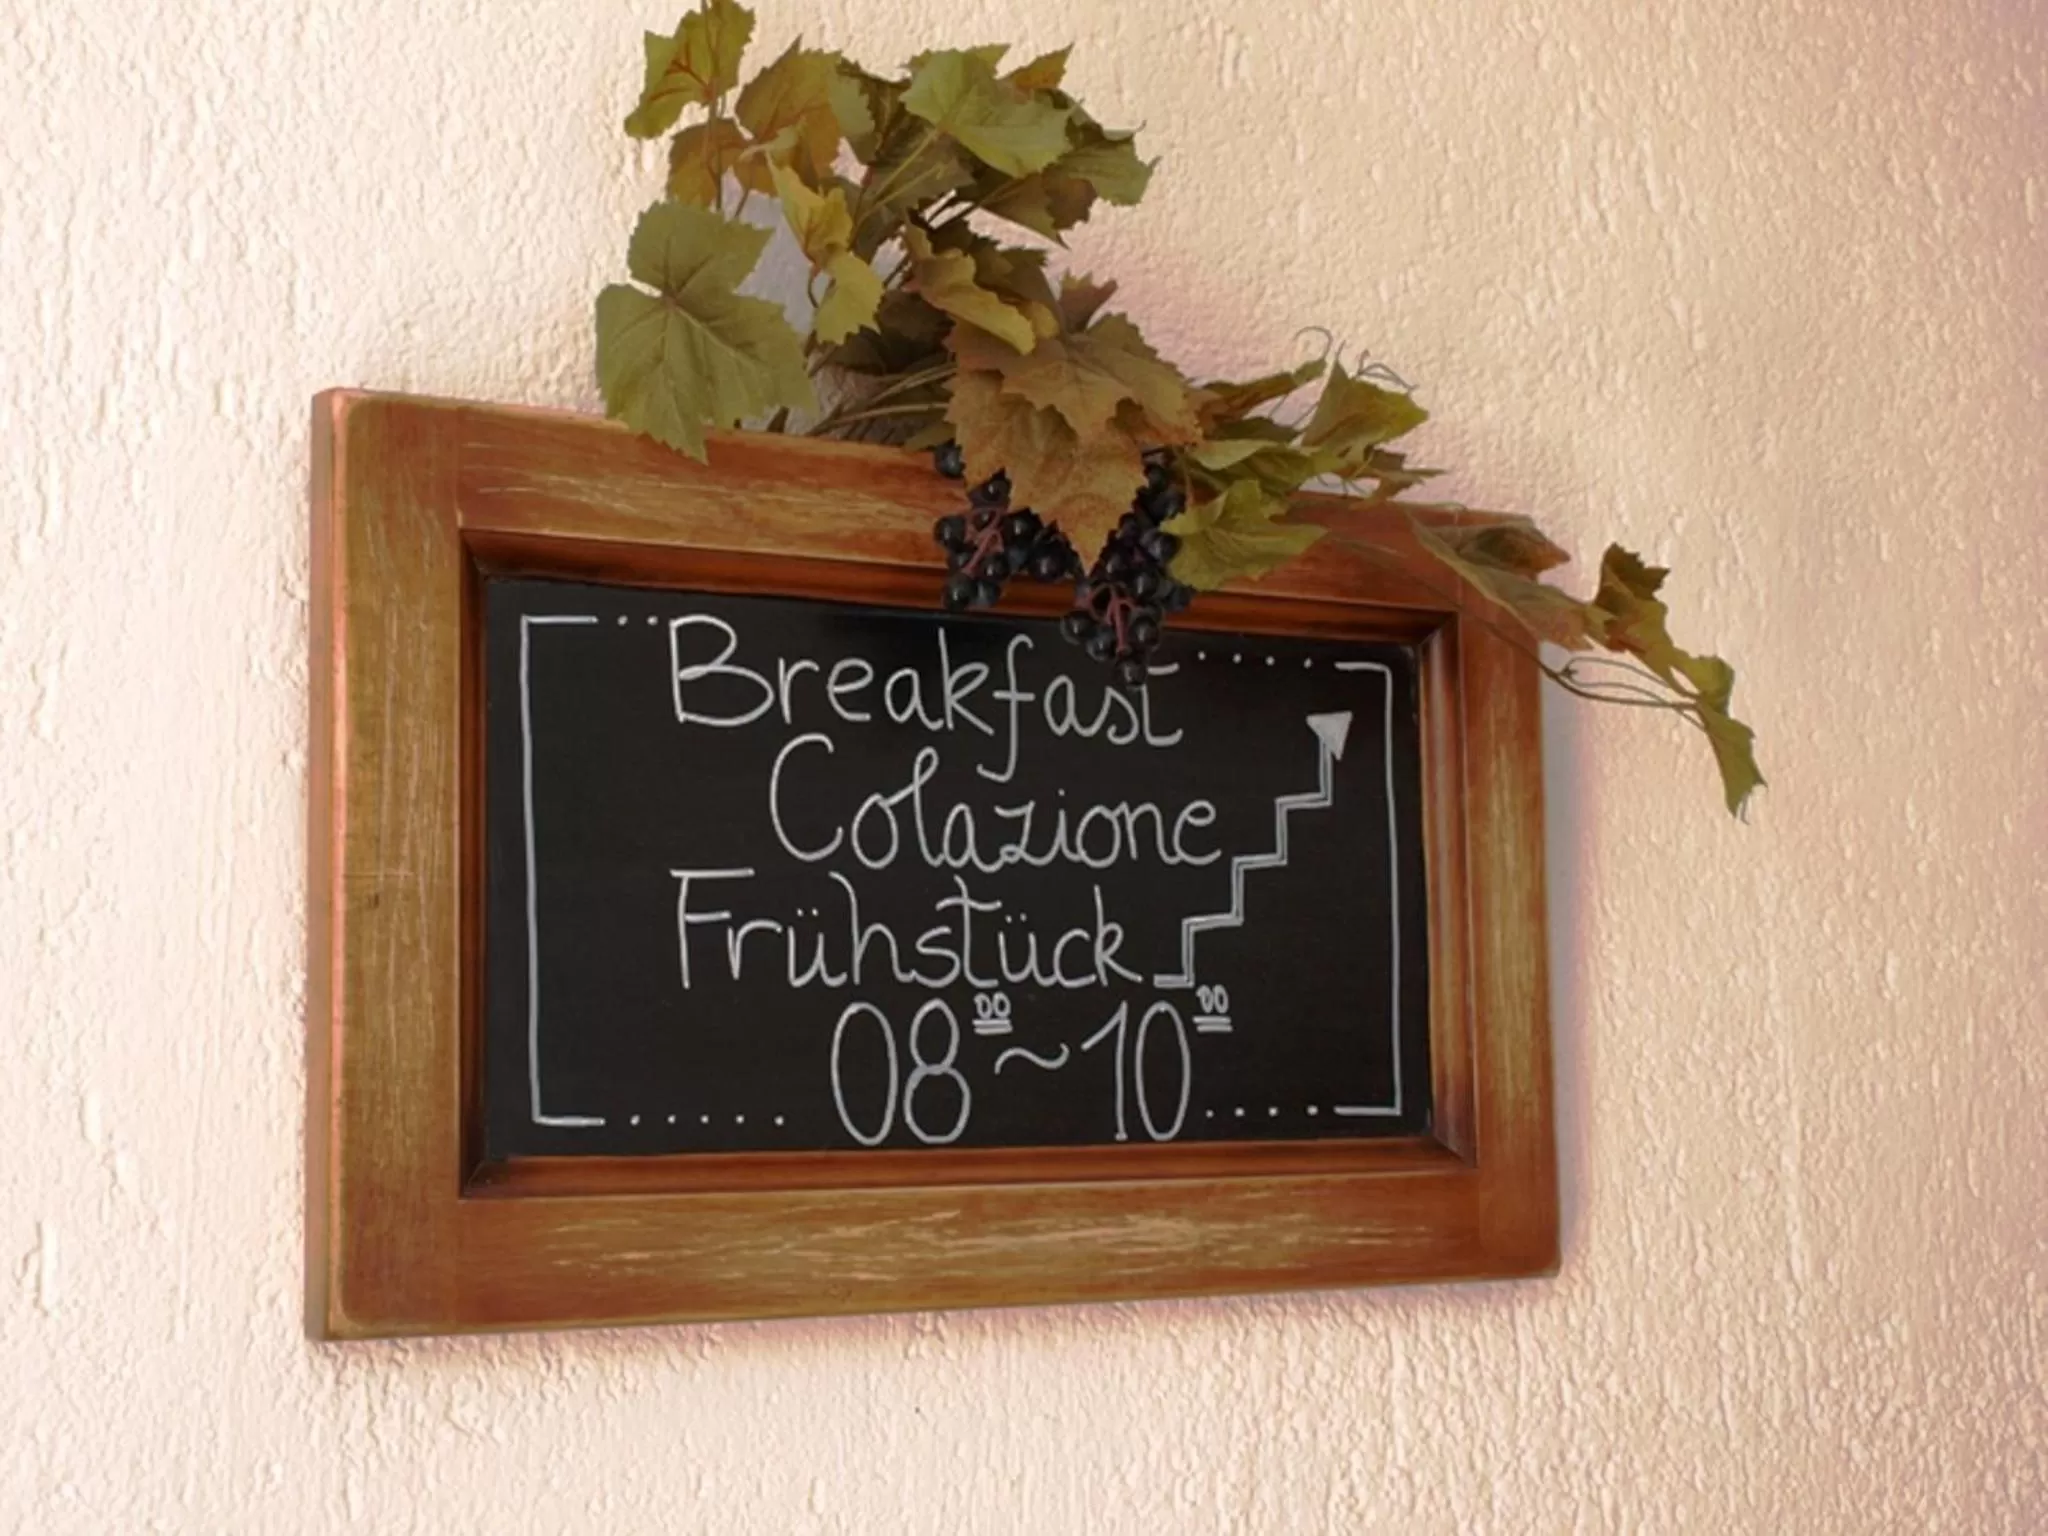 Breakfast
Colazione
Frühstück
08⁰⁰~10⁰⁰